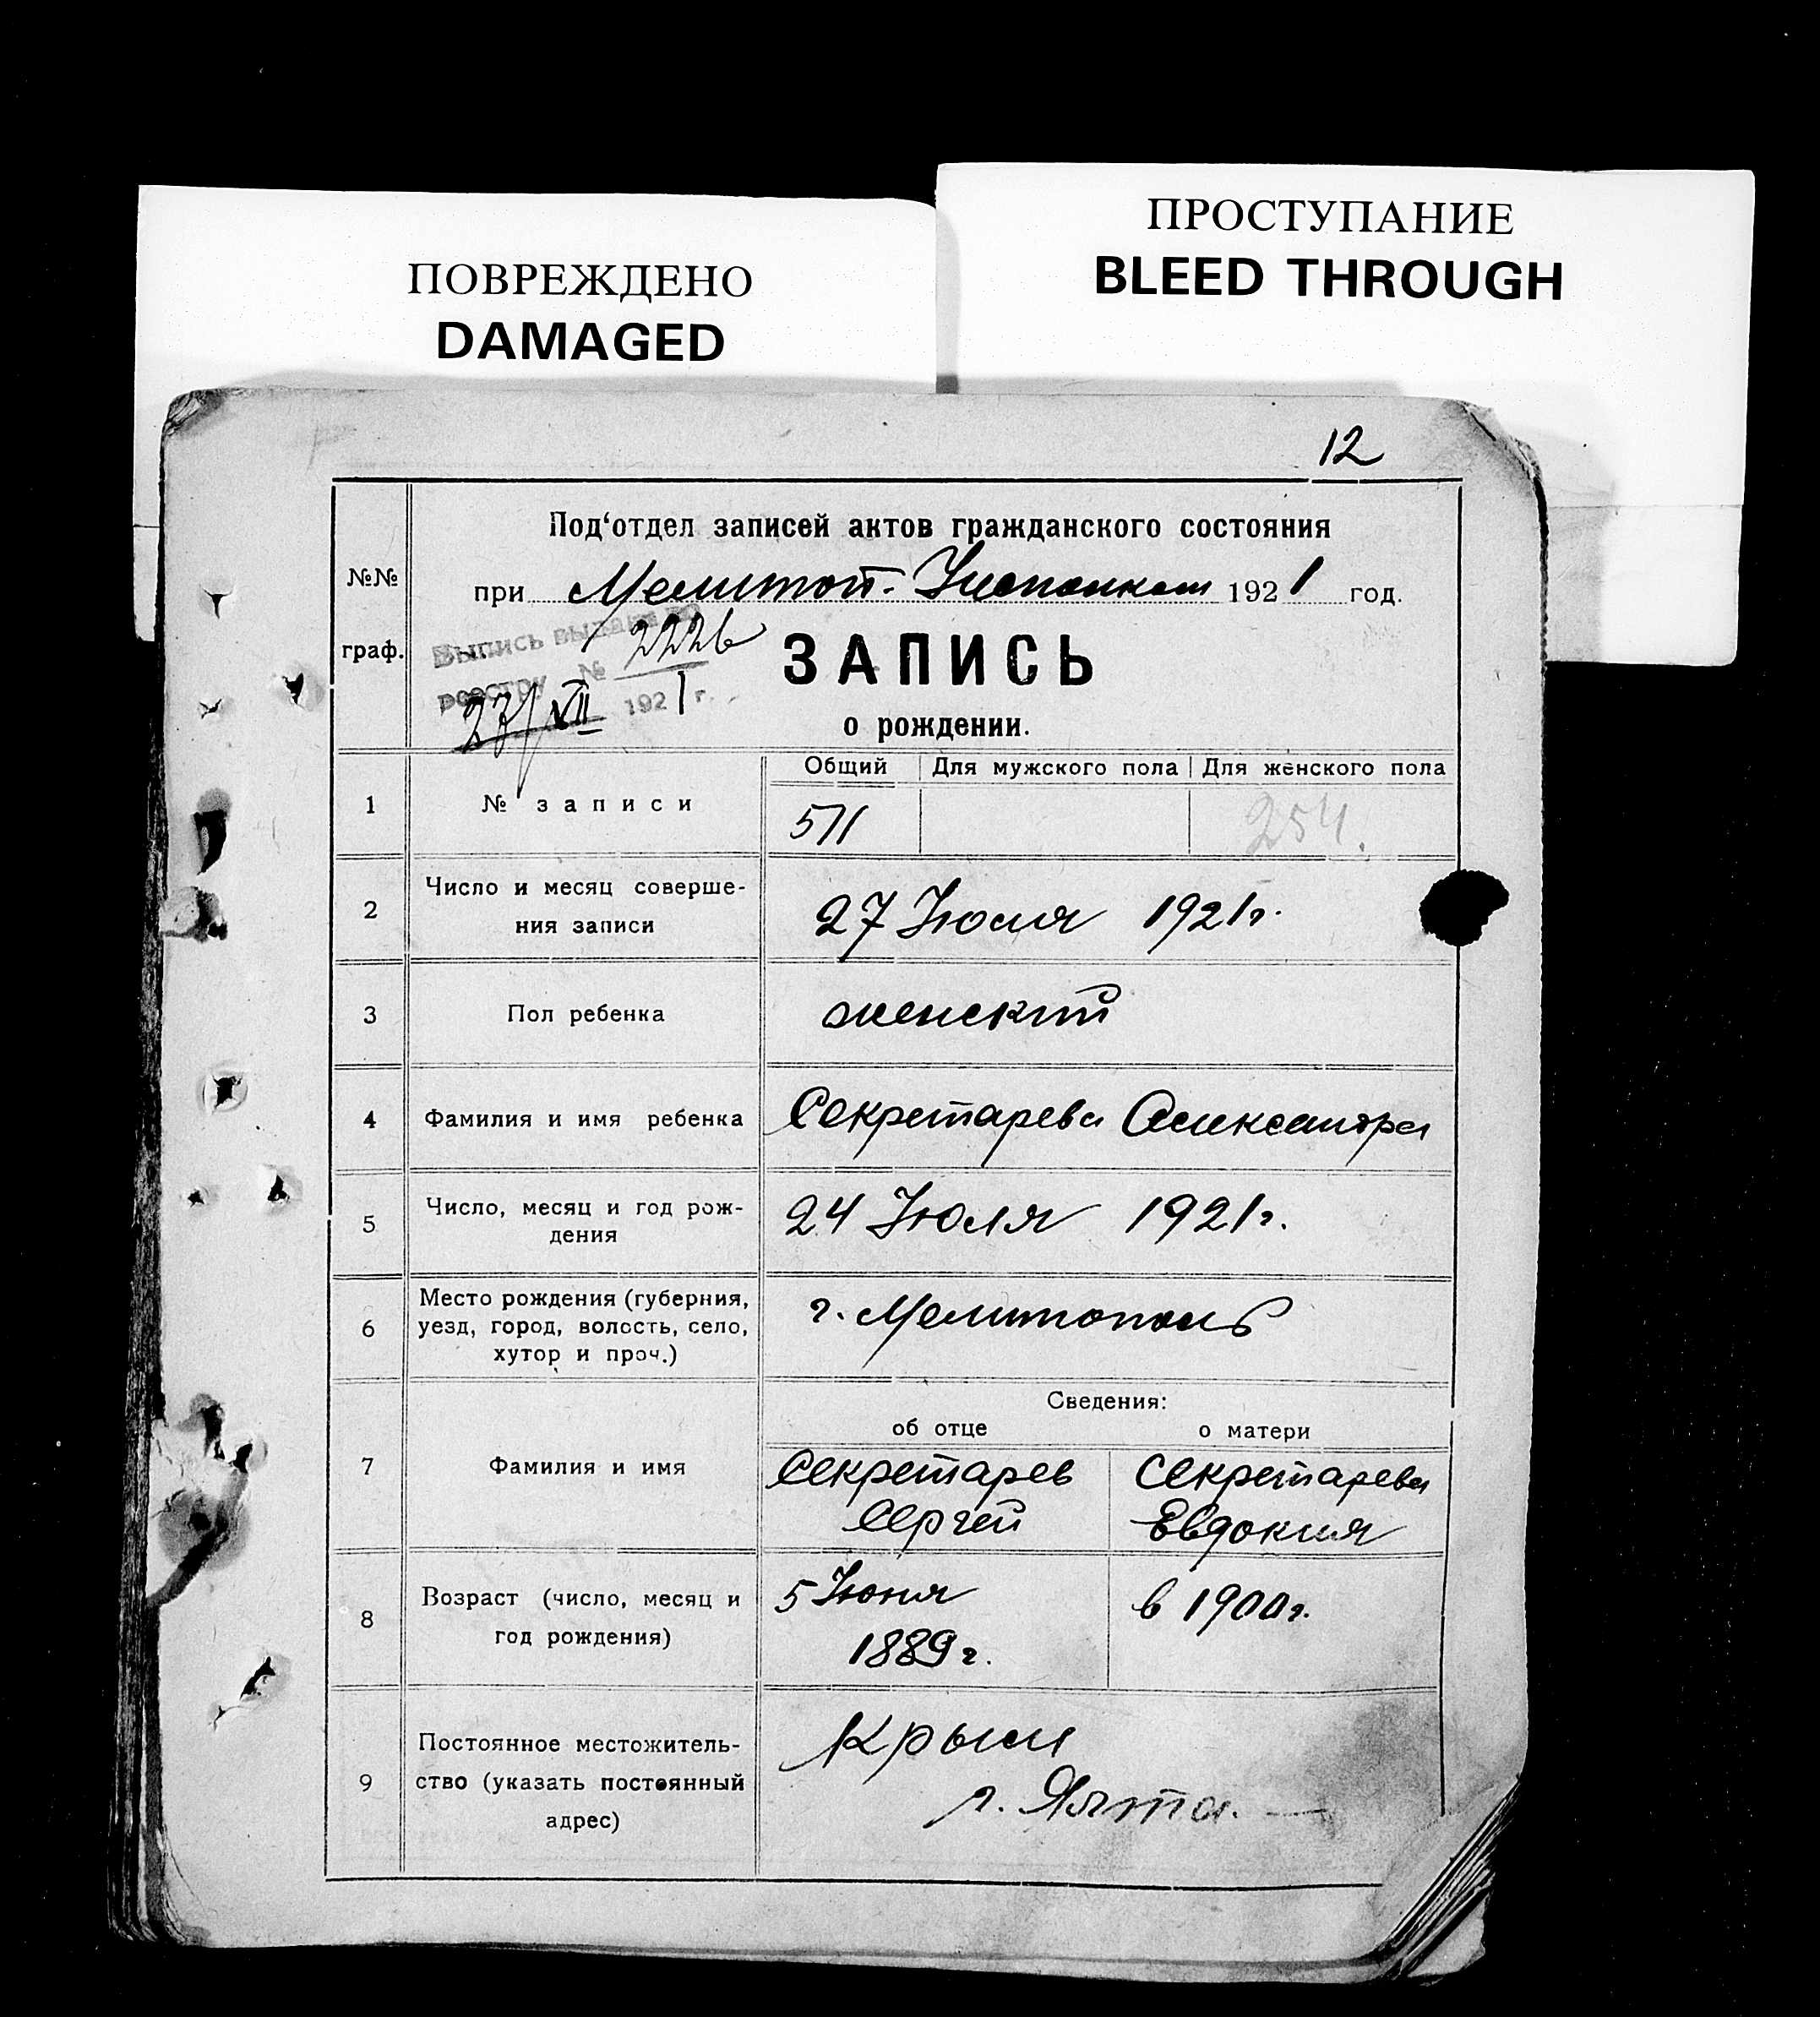 ПОВРЕЖДЕНО
DAMAGED
ПРОСТУПАНИЕ
BLEED THROUGH
12
№№
граф.
Под‘отдел записей актов гражданского состояния
при Мелитоп. 1921 год.
Выпись выдана по
реестру № 2226
27/VII 1921 г.
ЗАПИСЬ
о рождении.
Общий Для мужского пола Для женского пола
1 № записи 511 254.
2 Число и месяц соверше-
ния записи
27 Июля 1921г.
3 Пол ребенка женский
4 Фамилия и имя ребенка Секретарева Александра
5 Число, месяц и год рож-
дения
24 Июля 1921г.
6 Место рождения (губерния,
уезд, город, волость, село,
хутор и проч.)
г. Мелитополь
Сведения:
об отце о матери
7 Фамилия и имя
Секретарев
Сергей
Секретарева
Евдокия
8 Возраст (число, месяц и
год рождения)
5 Июня
1889 г.
в 1900г.
9 Постоянное местожитель-
ство (указать постоянный
адрес)
Крым
г. Ялта. —